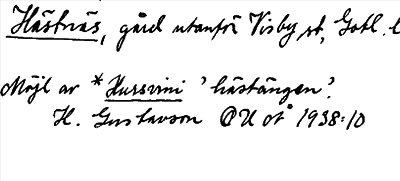 Hästnäs, gård utanför Visby st, Gotl. l
Möjl av *Hursvini 'hästängen'.
H. Gustavson OU ot 1938:10